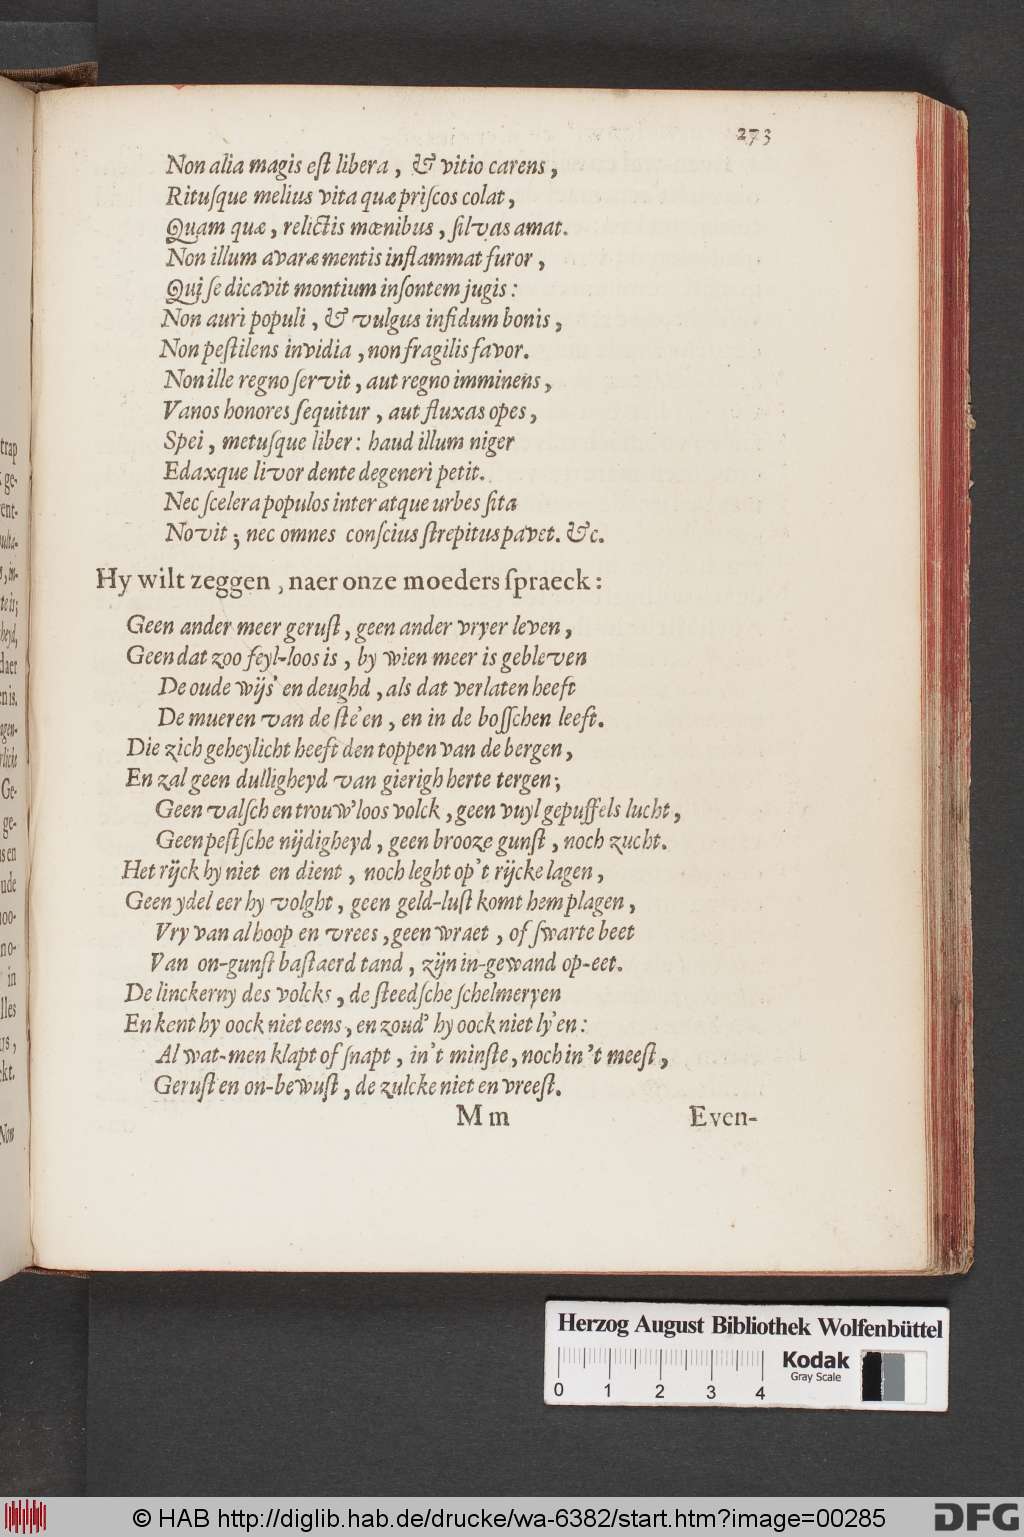 273
Non alia magis eſt libera, & vitio carens,
Rituſque melius vita quæ priſcos colat,
Quam quæ, relictis mœnibus, ſilvas amat.
Non illum avaræ mentis inflammat furor,
Qui ſe dicavit montium inſontem jugis:
Non auri populi, & vulgus infidum bonis,
Non peſtilens invidia, non fragilis favor.
Non ille regno ſervit, aut regno imminens,
Vanos honores ſequitur, aut fluxas opes,
Spei, metuſque liber: haud illum niger
Edaxque livor dente degeneri petit.
Nec ſcelera populos inter atque urbes ſita
Novit; nec omnes conſcius ſtrepitus pavet. &c.
Hy wilt zeggen, naer onze moeders ſpraeck:
Geen ander meer geruſt, geen ander vryer leven,
Geen dat zoo feyl-loos is, by wien meer is gebleven
De oude wijs' en deughd, als dat verlaten heeft
De mueren van de ſte'en, en in de boſſchen leeft.
Die zich geheylicht heeft den toppen van de bergen,
En zal geen dulligheyd van gierigh herte tergen;
Geen valſch en trouw'loos volck, geen vuyl gepuffels lucht,
Geen peſtſche nijdigheyd, geen brooze gunſt, noch zucht.
Het rijck hy niet en dient, noch leght op't rijcke lagen,
Geen ydel eer hy volght, geen geld-luſt komt hem plagen,
Vry van al hoop en vrees, geen wraet, of ſwarte beet
Van on-gunſt baſtaerd tand, zijn in-gewand op-eet.
De linckerny des volcks, de ſteedſche ſchelmeryen
En kent hy oock niet eens, en zoud' hy oock niet ly'en:
Al wat-men klapt of ſnapt, in't minſte, noch in't meeſt,
Geruſt en on-bewuſt, de zulcke niet en vreeſt.
Mm Even-
trap
ge-
ent-
in-
te is;
heyd,
daer
en is.
Ge-
ge-
us en
oude
noo-
no-
in
lles
us,
ckt.
Now
Herzog August Bibliothek Wolfenbüttel
Kodak
Gray Scale
0 1 2 3 4
© HAB http://diglib.hab.de/drucke/wa-6382/start.htm?image=00285
DFG